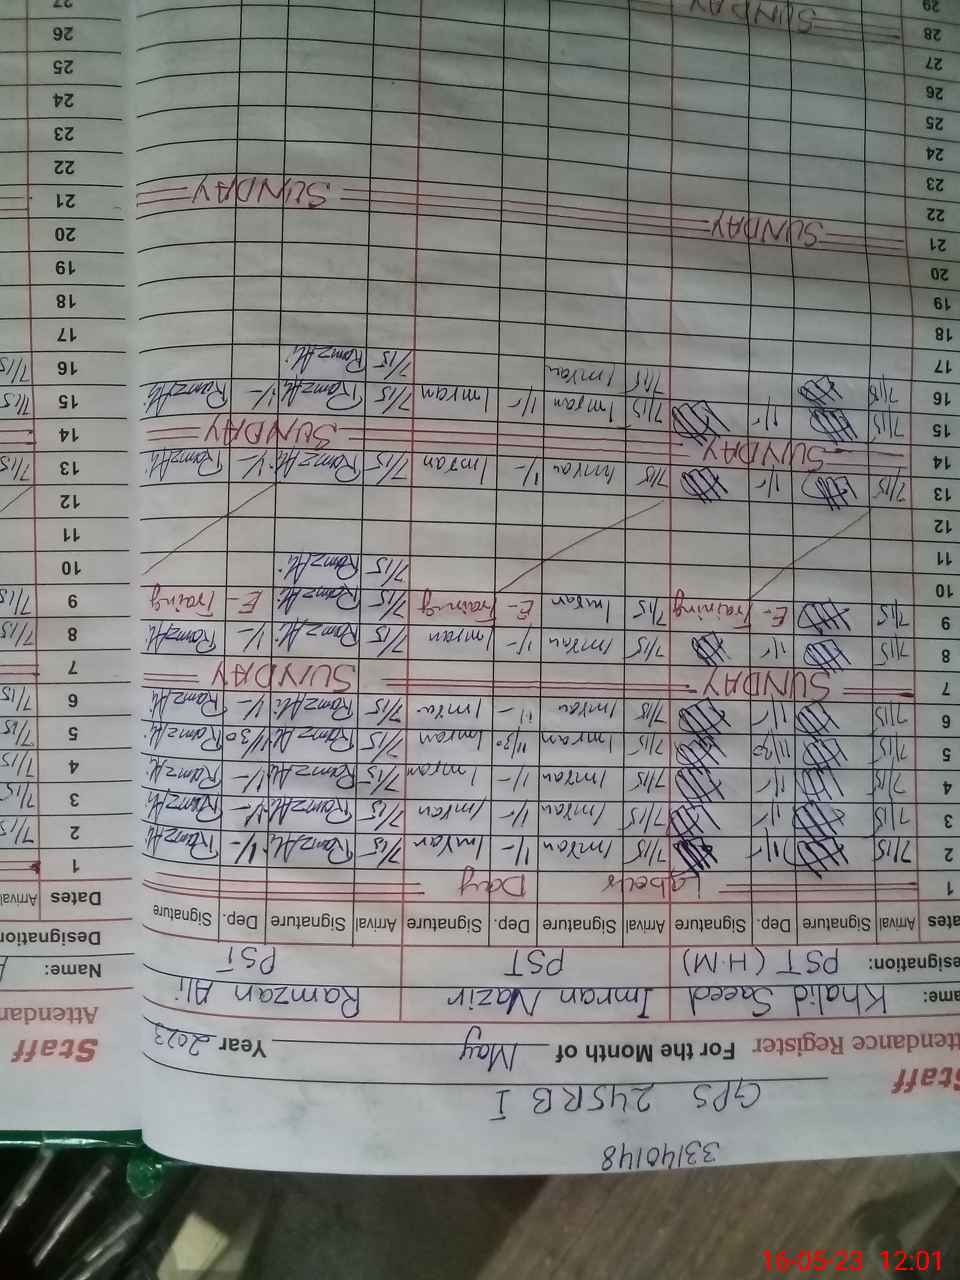 33140148
GPS 245RB I
Staff Attendance Register For the Month of May Year 2023
Name: Khalid Saeed Imran Nazir Ramzan Ali
Designation: PST (H.M) PST PST
Dates Arrival Signature Dep. Signature Arrival Signature Dep. Signature Arrival Signature Dep. Signature
1 Labour Day
2 7/15 1/- 7/15 Imran 1/- Imran 7/15 RamzAli 1/- RamzAli
3 7/15 1/- 7/15 Imran 1/- Imran 7/15 RamzAli 1/- RamzAli
4 7/15 1/- 7/15 Imran 1/- Imran 7/15 RamzAli 1/- RamzAli
5 7/15 11/30 7/15 Imran 11/30 Imran 7/15 RamzAli 11/30 RamzAli
6 7/15 1/- 7/15 Imran 1/- Imran 7/15 RamzAli 1/- RamzAli
7 SUNDAY SUNDAY
8 7/15 1/- 7/15 Imran 1/- Imran 7/15 RamzAli 1/- RamzAli
9 7/15 E- Traing 7/15 Imran E- Traing 7/15 RamzAli E- Traing
10 7/15 RamzAli
11
12
13 7/15 1/- 7/15 Imran 1/- Imran 7/15 RamzAli 1/- RamzAli
14 SUNDAY SUNDAY
15 7/15 1/- 7/15 Imran 1/- Imran 7/15 RamzAli 1/- RamzAli
16 7/15 7/15 Imran 7/15 RamzAli
17
18
19
20
21 SUNDAY SUNDAY
22
23
24
25
26
27
28 SUNDAY
29
Staff Attendan
Name:
Designation
Dates Arrival
1
2 7/15
3 7/15
4 7/15
5 7/15
6 7/15
7
8 7/15
9 7/15
10
11
12
13 7/15
14
15 7/15
16 7/15
17
18
19
20
21
22
23
24
25
26
27
16-05-23 12:01